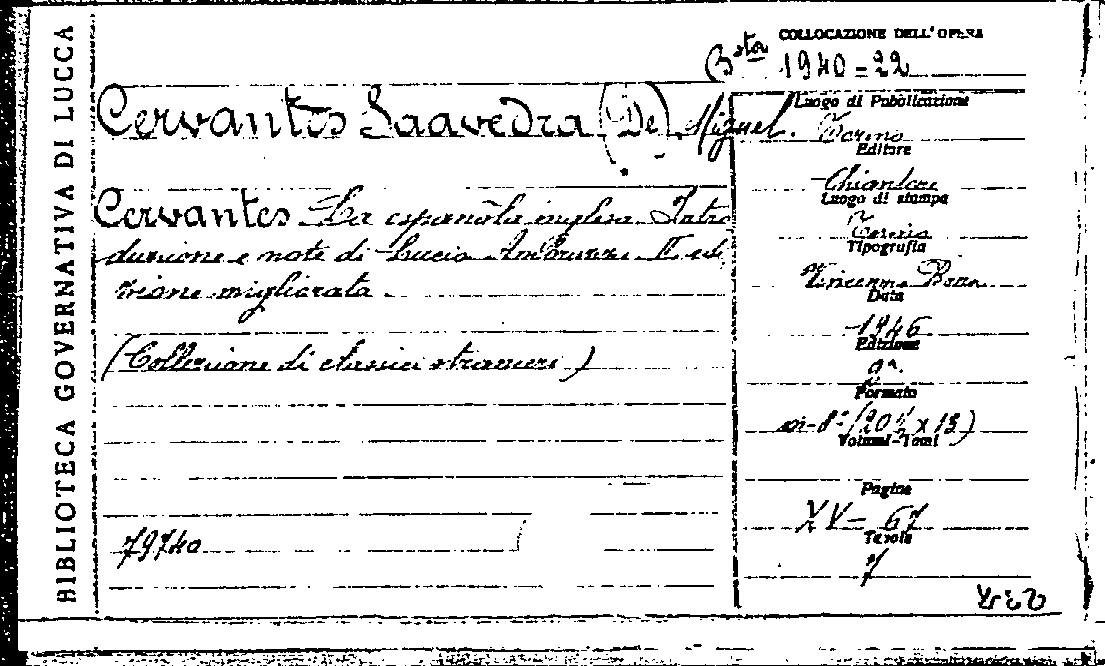 BIBLIOTECA GOVERNATIVA DI LUCCA
COLLOCAZIONE DELL'OPERA
Bsta 1940=22
Cervantes Saavedra (De) Miguel.
Cervantes La española inglesa Intro
duzione e note di Lucio Ambruzzi II edi
zione migliorata
(Collezione di classici stranieri)
79740
Luogo di Pubblicazione
Torino
Editore
Chiantore
Luogo di stampa
Torino
Tipografia
Vincenzo Bona
Data
1946
Edizione
2ª.
Formato
in-8° (20½ x 13)
Volumi-Tomi
Pagine
XV= 67
Tavole
/